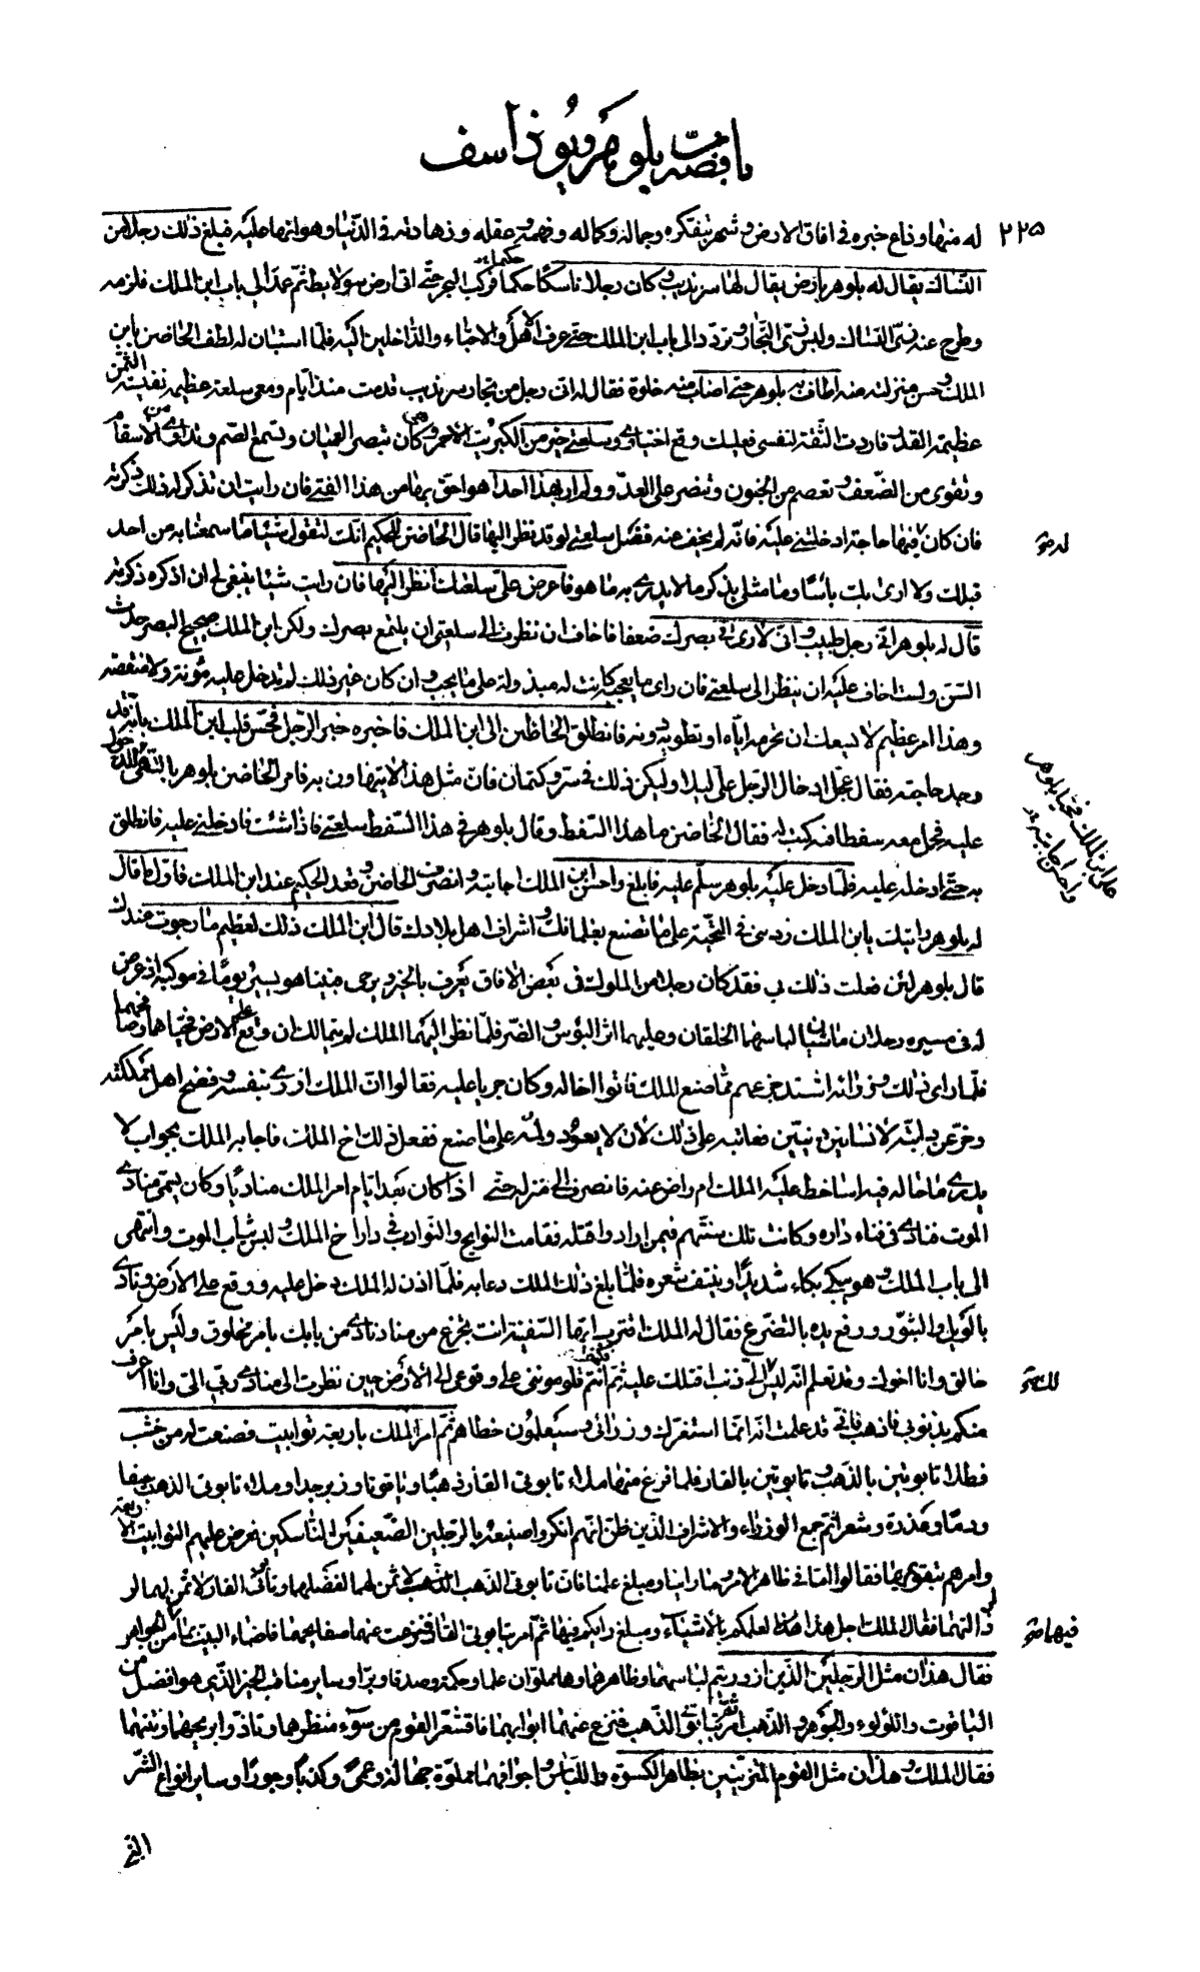 باب قصة بلوهر ويوذاسف
٢٢٥
له منها وذاع خبره في افاق الارض وشهر بتفكره وجماله وكماله وفهمه وعقله وزهادته في الدنيا وهوانها عليه فبلغ ذلك رجلا من
النساك يقال له بلوهر بارض يقال لها سرنديب وكان رجلا ناسكا حكيما فركب البحر حتى اتى ارض سولابط ثم عمد الى باب ابن الملك فلزمه
وطرح عنه زي النساك ولبس زي التجار وتردد الى باب ابن الملك حتى عرف الاهل والاحباء والداخلين اليه فلما استبان له لطف الحاضن بابن
الملك وحسن منزلته منه اطاف به بلوهر حتى اصاب منه خلوة فقال له انى رجل من تجار سرنديب قدمت منذ ايام ومعى سلعة عظيمة نفيسة الثمن
عظيمة القدر فاردت الثقة لنفسى فعليك وقع اختياري وسلعتى خير من الكبريت الاحمر وهى تبصر العميان وتسمع الصم وتداوي من الاسقام
وتقوى من الضعف وتعصم من الجنون وتنصر على العدو ولم ار بهذا احدا هو احق بها من هذا الفتى فان رايت ان تذكر له ذلك ذكرته
فان كان له فيها حاجة ادخلتنى عليه فانه لم يخف عنه فضل سلعتى لو قد نظر اليها قال الحاضن للحكيم انك لتقول شيئا ما سمعنا به من احد
قبلك ولا ارى بك باسا وما مثلى يذكر ما لا يدري به ما هو فاعرض على سلعتك انظر اليها فان رايت شيئا ينبغى لى ان اذكره ذكرته
قال له بلوهر انى رجل طبيب وانى لارى في بصرك ضعفا فاخاف ان نظرت الى سلعتى ان يلتمع بصرك ولكن ابن الملك صحيح البصر حدث
السن ولست اخاف عليه ان ينظر الى سلعتى فان راى ما يعجبه كانت له مبذولة على ما يحب وان كان غير ذلك لم تدخل عليه مؤنة ولا منقصة
وهذا امر عظيم لا يسعك ان تحرمه اياه او تطويه دونه فانطلق الحاضن الى ابن الملك فاخبره خبر الرجل فحس قلب ابن الملك بانه قد
وجد حاجته فقال عجل ادخال الرجل على ليلا وليكن ذلك في سر وكتمان فان مثل هذا لا يتهاون به فامر الحاضن بلوهر بالتهيئ للدخول
عليه فحمل معه سفطا فيه كتب له فقال الحاضن ما هذا السفط وقال بلوهر في هذا السفط سلعتى فاذا شئت فادخلنى عليه فانطلق
به حتى ادخله عليه فلما دخل عليه بلوهر سلم عليه فابلغ واحسن ابن الملك اجابته وانصرف الحاضن وقعد الحكيم عند ابن الملك فاول ما قال
له بلوهر رايتك يا بن الملك زدتنى في التحية على ما تصنع بغلمانك واشراف اهل بلادك قال ابن الملك ذلك لعظيم ما رجوت عندك
قال بلوهر لئن فعلت ذلك بى فقد كان رجلا من الملوك في بعض الافاق يعرف بالخير ويرجى فبينا هو يسير يوما في موكبه اذ عرض
له في مسيره رجلان ماشيان لباسهما الخلقان وعليهما اثر البؤس والضر فلما نظر اليهما الملك لم يتمالك ان وقع على الارض فحياهما وصافحهما
فلما راى ذلك وزرائه اشتد جزعهم مما صنع الملك فاتوا اخا له وكان جريا عليه فقالوا ان الملك ازرى بنفسه وفضح اهل مملكته
وخر عن دابته لانسانين دنيين فعاتبه على ذلك لان لا يعود ولمه على ما صنع ففعل ذلك اخ الملك فاجابه الملك بجواب لا
يدرى ما حاله فيه اساخط عليه الملك ام راض عنه فانصرف الى منزله حتى اذا كان بعد ايام امر الملك مناديا وكان يسمى منادي
الموت فنادى في فناء داره وكانت تلك سنتهم فيمن ارادوا قتله فقامت النوايح والنوادب في دار اخ الملك ولبس ثياب الموت وانتهى
الى باب الملك وهو يبكى بكاء شديدا وينتف شعره فلما بلغ ذلك الملك دعا به فلما اذن له الملك دخل عليه ووقع على الارض ونادى
بالويل والثبور ورفع يده بالتضرع فقال له الملك اقترب ايها السفيه انت تجزع من مناد نادى من بابك بامر مخلوق وليس بامر
خالق وانا اخوك وقد تعلم انه ليس لك الى ذنب اقتلك عليه ثم انتم تلوموننى على وقوعى الى الارض حين نظرت الى منادى ربى الى وانا اعرف
منكم بذنوبى فاذهب فانى قد علمت انه انما استغرك وزرائى وسيعلمون خطاهم ثم امر الملك باربعة توابيت فصنعت له من خشب
فطلا تابوتين بالذهب وتابوتين بالقار فلما فرغ منها ملاء تابوتى القار ذهبا وياقوتا وزبرجدا وملاء تابوتى الذهب جيفا
ودما وعذرة وشعرا ثم جمع الوزراء والاشراف الذين ظن انهم انكروا صنيعه بالرجلين الضعيفين الناسكين فعرض عليهم التوابيت الاربعة
وامرهم بتقويمها فقالوا اما في ظاهر الامر وما راينا ومبلغ علمنا فان تابوتى الذهب لا ثمن لهما لفضلهما وتابوتى القار لا ثمن لهما لر
ذالتهما فقال الملك اجل هذا لعلمكم بالاشياء ومبلغ رايكم فيها ثم امر بتابوتى القار فنزعت عنهما صفايحهما فاضاء البيت بما فيهما من الجواهر
فقال هذان مثل الرجلين الذين ازدريتم لباسهما وظاهرهما وهما مملوان علما وحكمة وصدقا وبرا وساير مناقب الخير الذي هو افضل من
الياقوت واللؤلؤ والجوهر والذهب ثم امر بتابوتى الذهب فنزع عنهما ابوابهما فاقشعر القوم من سوء منظرها وتاذوا بريحهما ونتنهما
فقال الملك وهذان مثل القوم المتزينين بظاهر الكسوة واللباس واجوافهما مملوة جهالة وعمى وكذبا وجورا وساير انواع الشر
التى
له خ
على ابن الملك فحيا بلوهر
واحسن اجابته
لك خ
فيهما خ